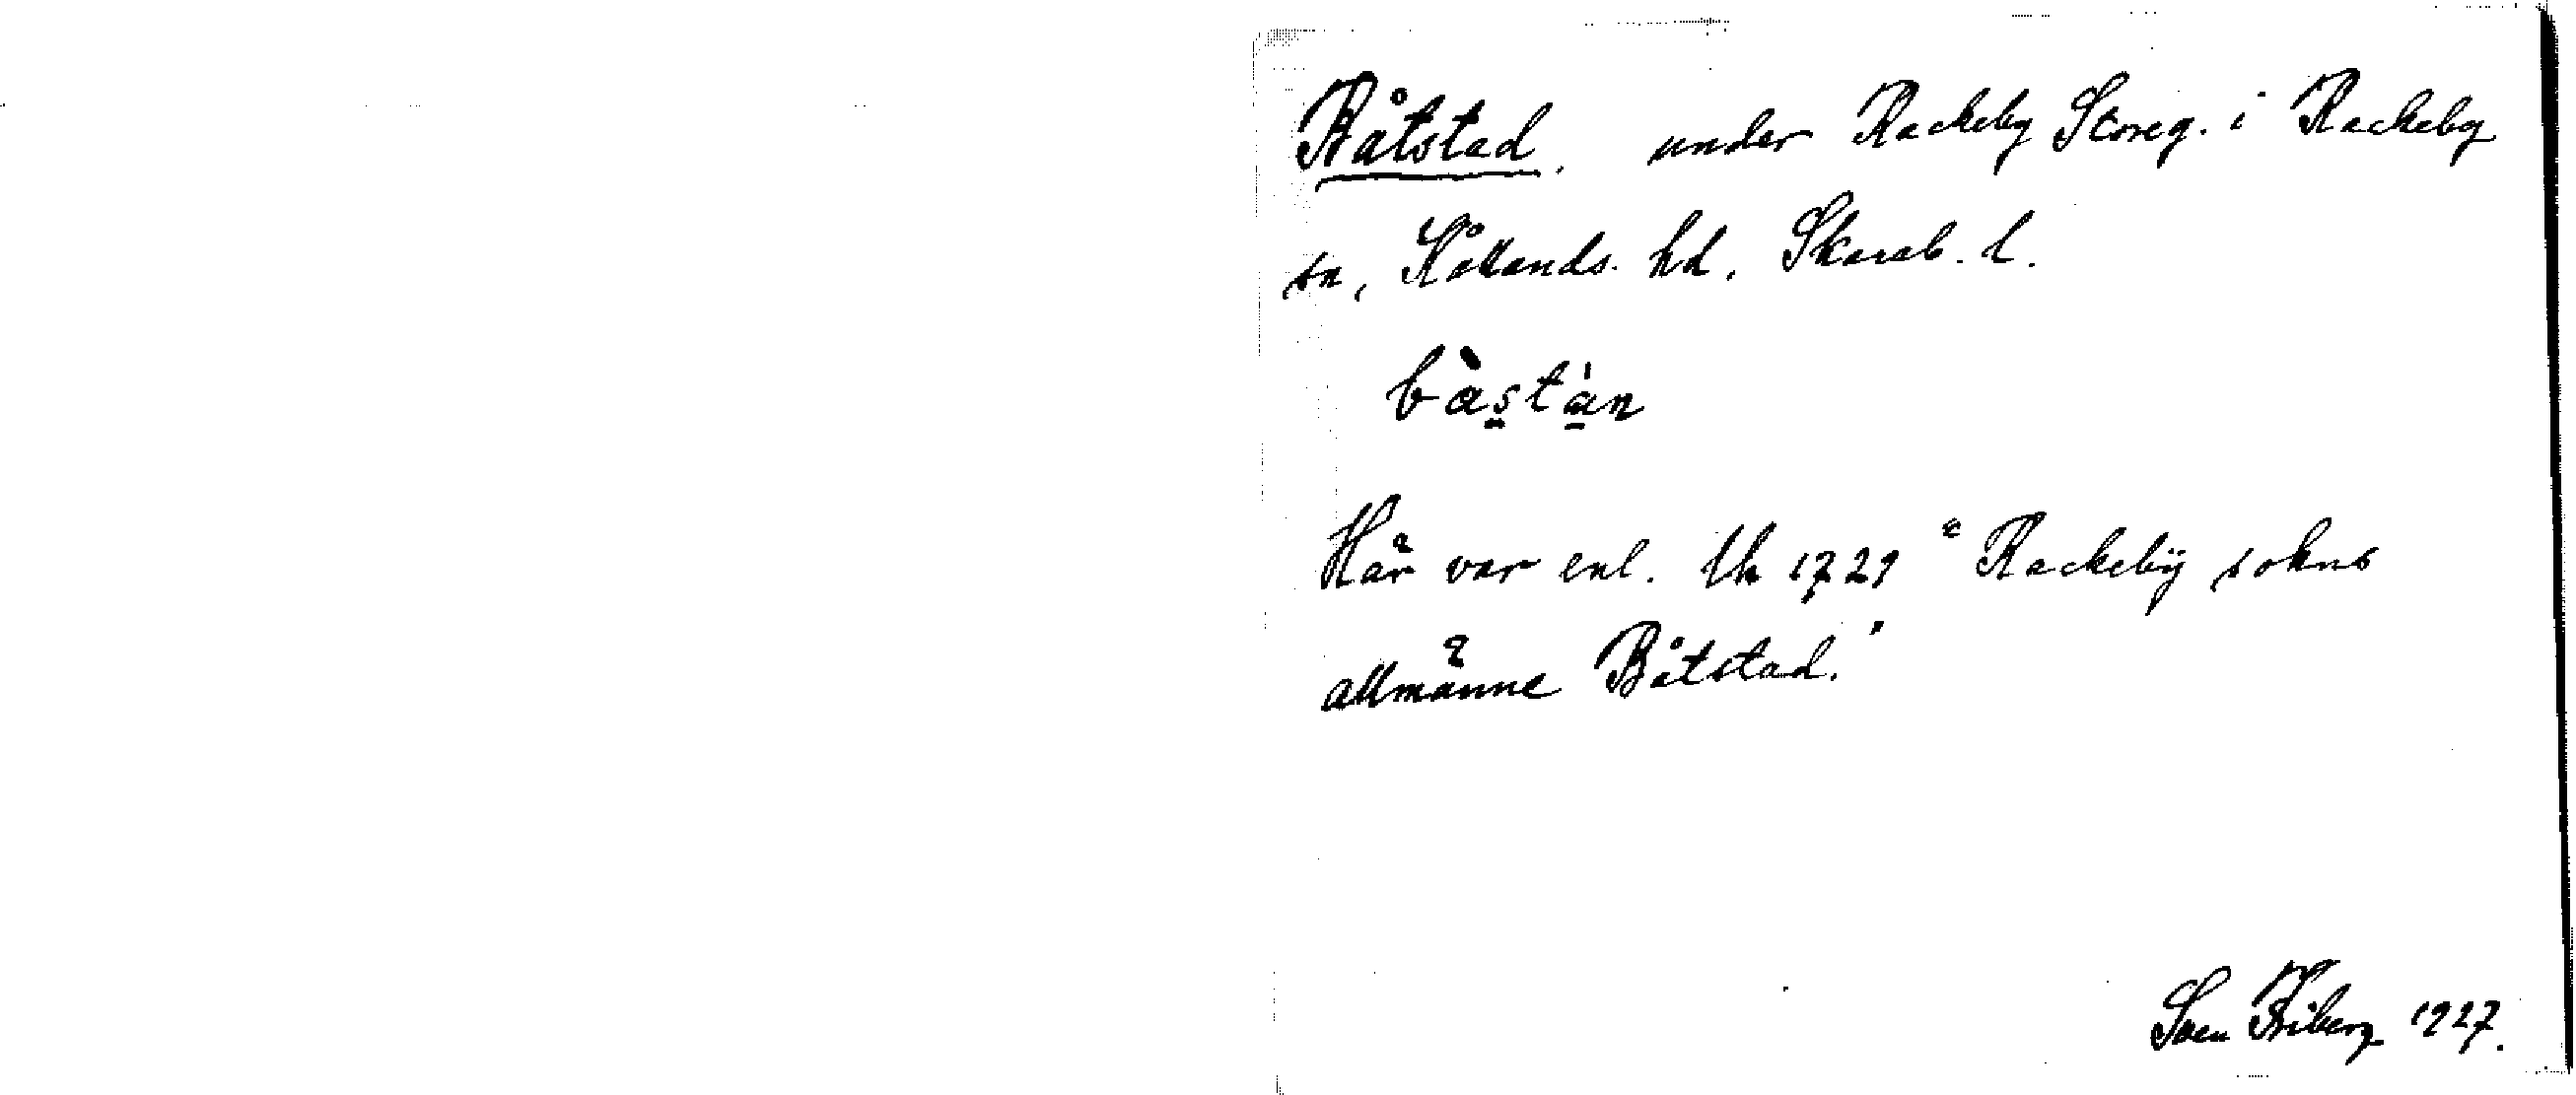 Båtstad. under Rackeby Storeg. i Rackeby
sn, Kållands. hd, Skarab. l.
bàstán
Här var enl. Uh 1729 "Rackebÿ sokns
allmänne Båtstad."
Sven Friberg 1927.